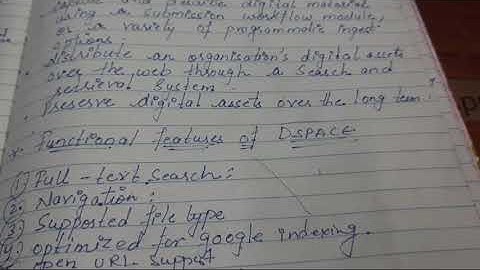 capture and describe digital material
using a submission workflow module,
or a variety of programmatic ingest
options.
• distribute an organisation's digital assets
over the web through a search and
retrieval system.
• Preserve digital assets over the long term.
* Functional features of DSPACE
① Full-text search:
②. Navigation:
③ Supported file type
④. optimized for google indexing.
open URL support